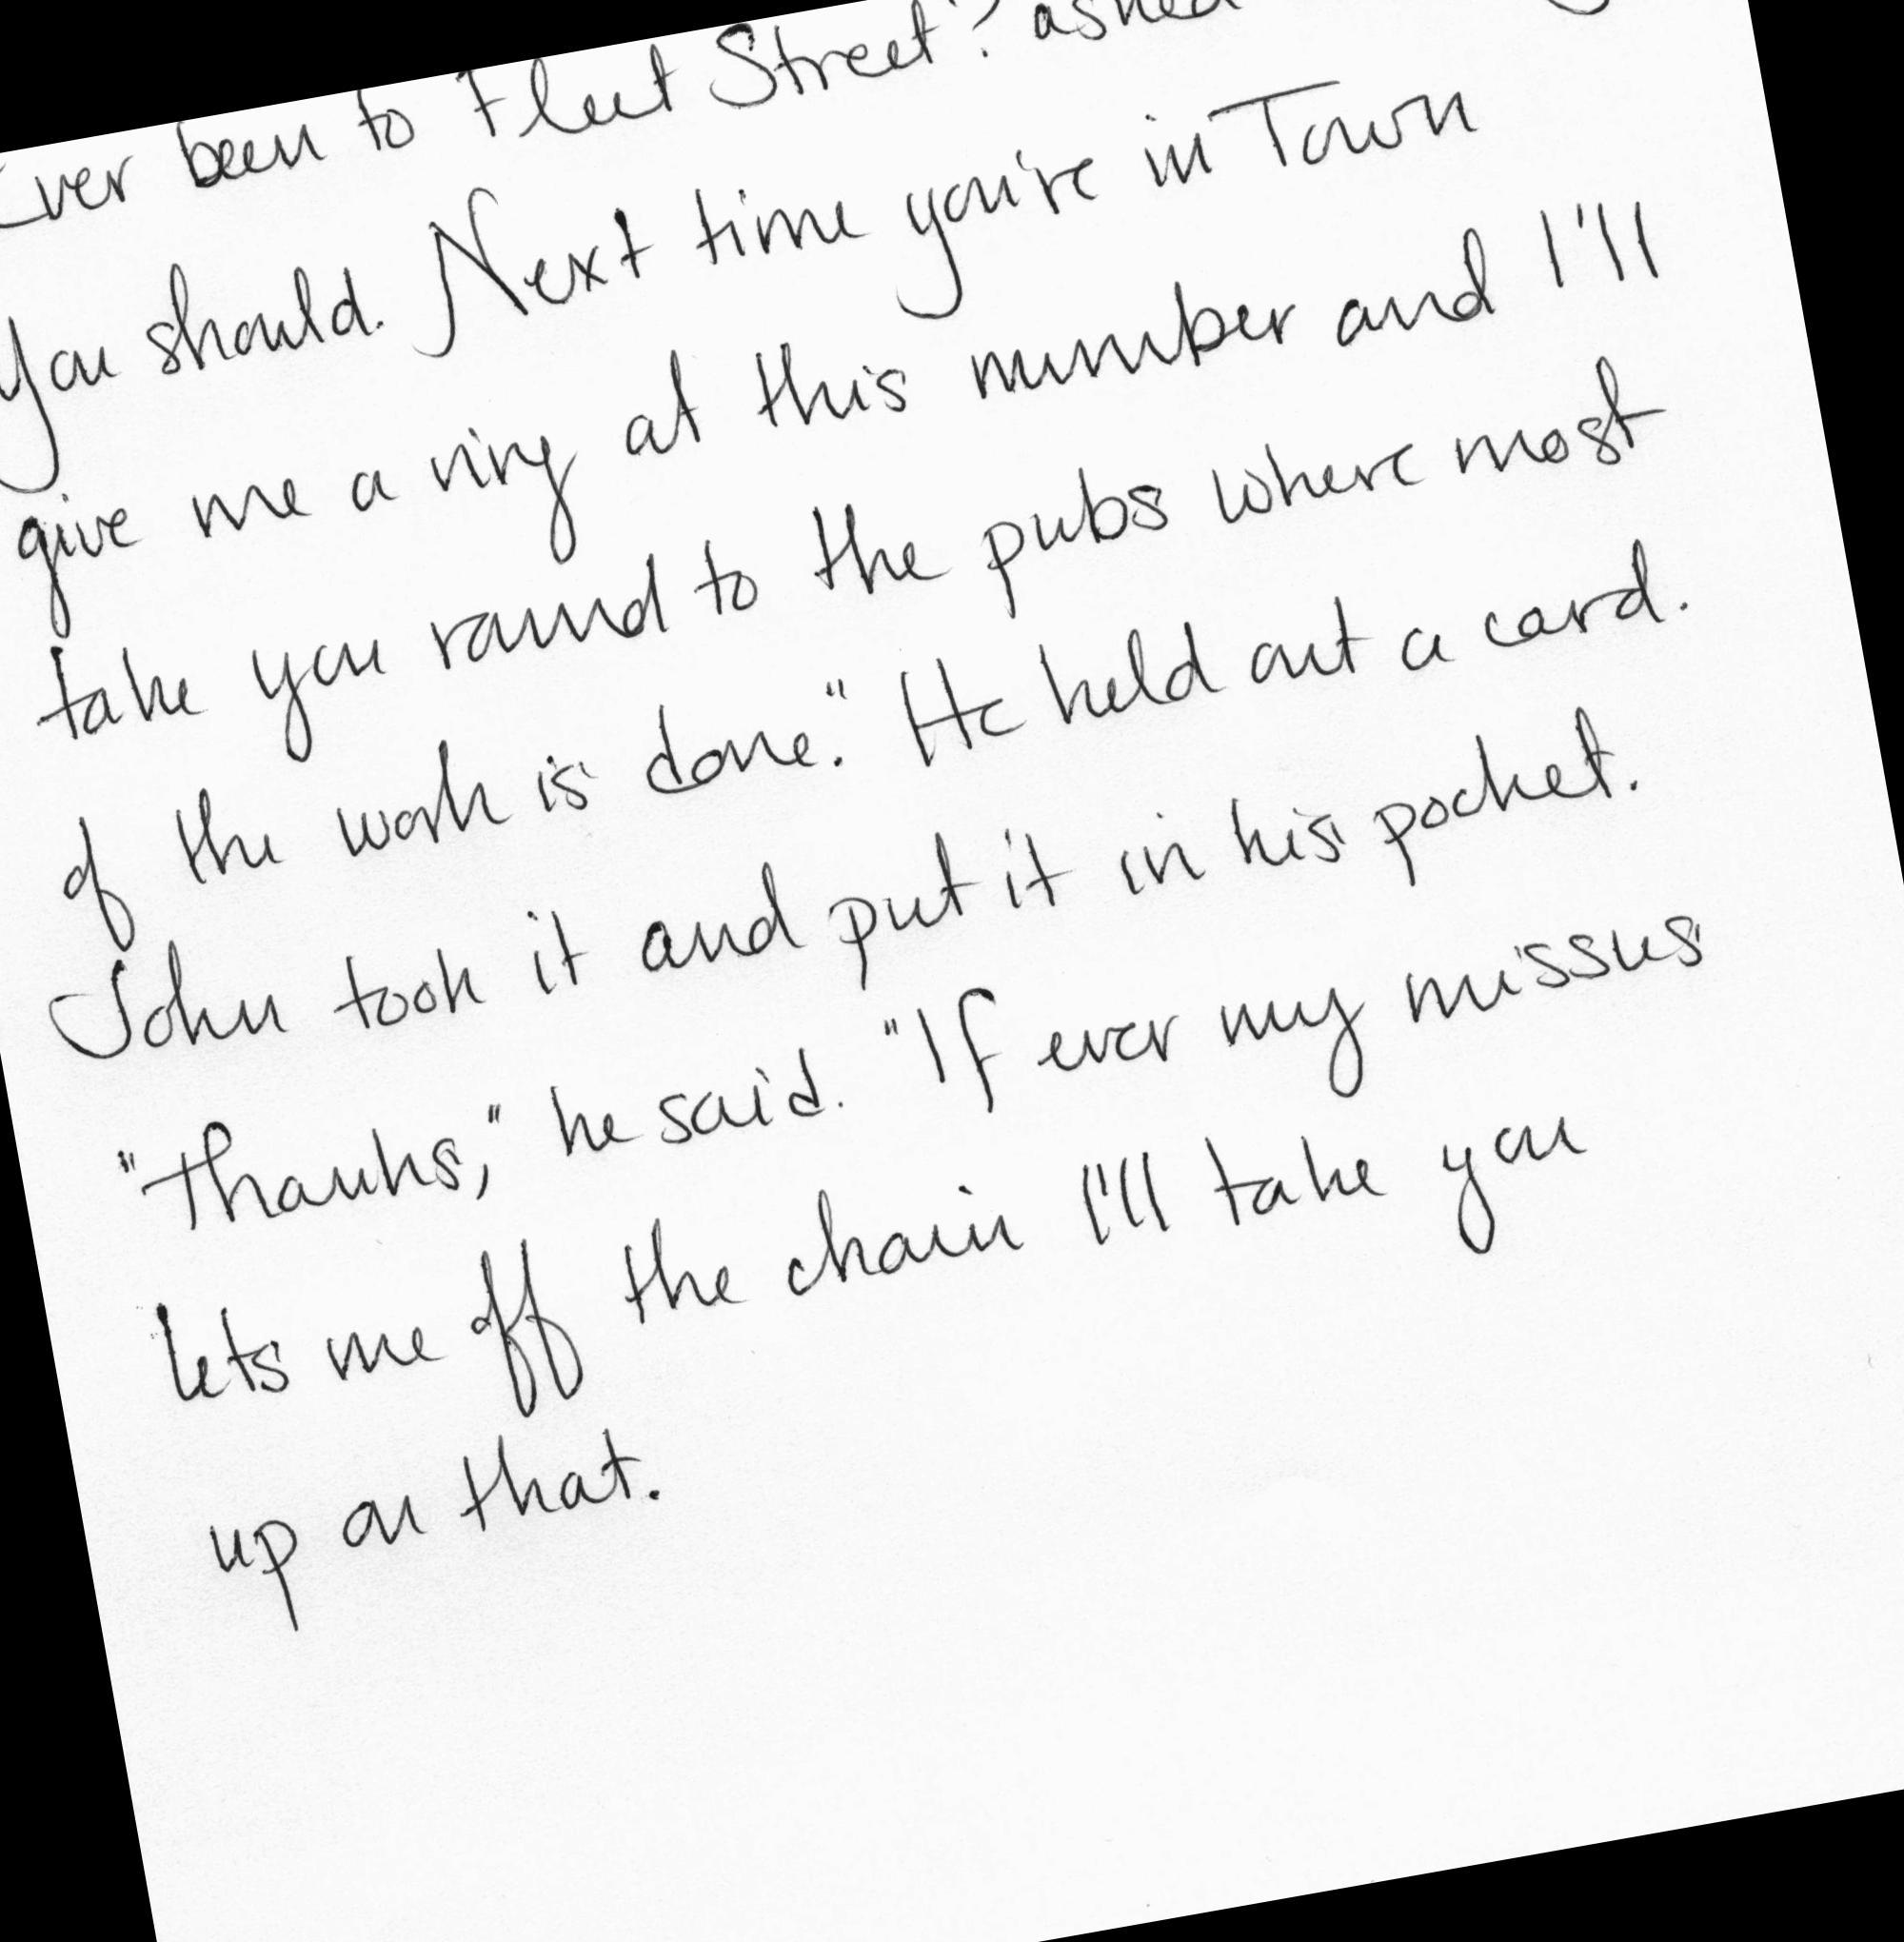 Ever been to Fleet Street? asked
you should. Next time you're in Town
give me a ring at this number and I'll
take you round to the pubs where most
of the work is done." He held out a card.
John took it and put it in his pocket.
"Thanks," he said. "If ever my missus
lets me off the chain I'll take you
up on that.